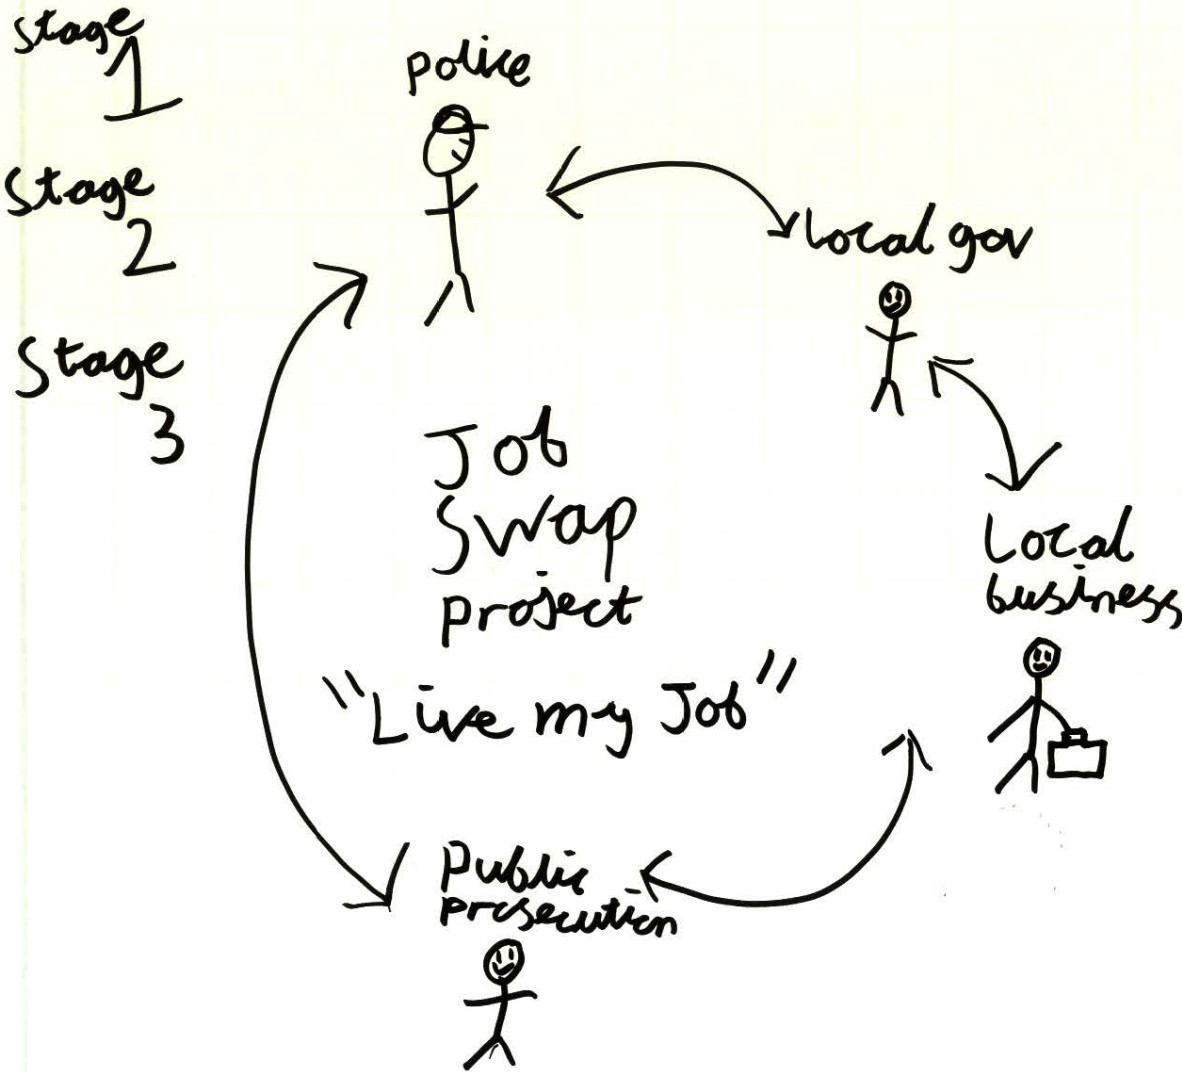 Stage
1
Stage
2
Stage
3
police
local gov
Local
business
Job
Swap
project
"Live my Job"
Public
prosecution